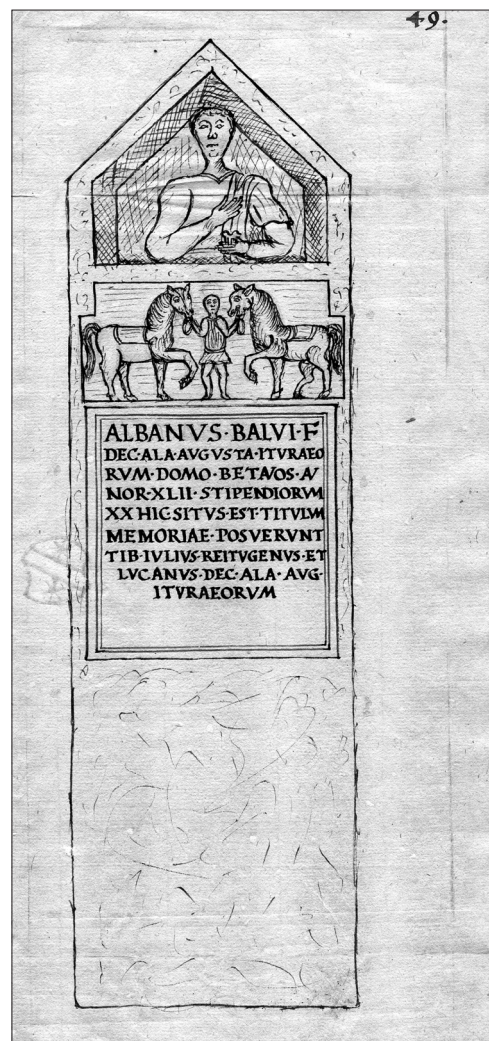 49.
ALBANVS·BALVI·F
DEC·ALA·AVGVSTA·ITVRAEO
RVM·DOMO·BETAVOS·A/
NOR·XLII·STIPENDIORVM
XX HIC·SITVS·EST·TITVLVM
MEMORIAE·POSVERVNT
TIB·IVLIVS·REITVGENVS·ET
LVCANVS·DEC·ALA·AVG·
ITVRAEORVM